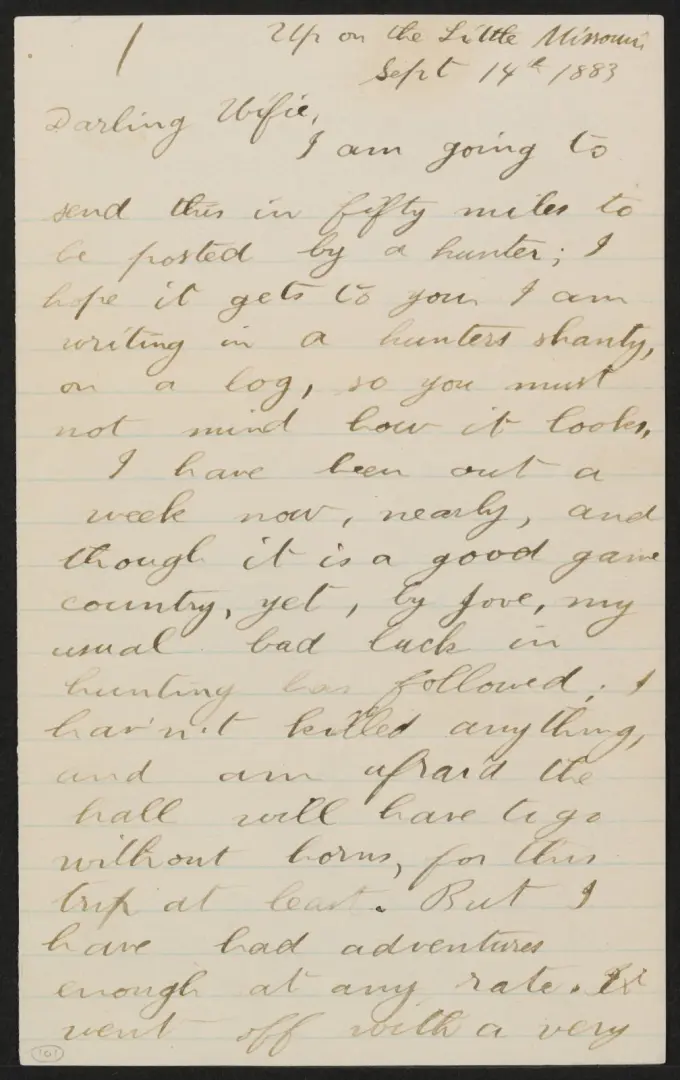 1
Up on the Little Missouri
Sept 14th 1883
Darling Wifie,
I am going to
send this in fifty miles to
be posted by a hunter; I
hope it gets to you I am
writing in a hunters shanty,
on a log, so you must
not mind how it looks.
I have been out a
week now, nearly, and
though it is a good game
country, yet, by Jove, my
usual bad luck in
hunting has followed. I
hav'n't killed anything,
and am afraid the
hall will have to go
without horns, for this
trip at least. But I
have had adventures
enough at any rate.
went off with a very
101